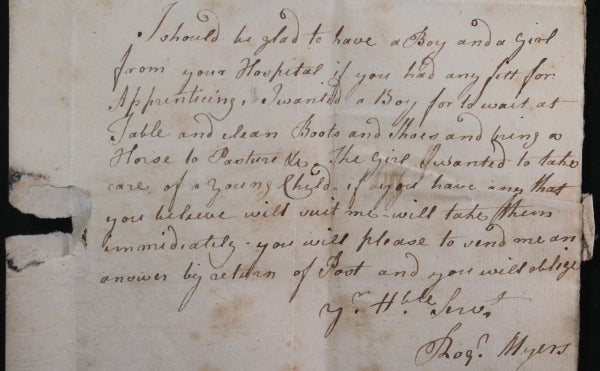 I should be glad to have a Boy and a Girl
from your Hospital if you had any fitt for
Apprenticing. I wanted a Boy for to wait at
Table and clean Boots and Shoes and bring a
Horse to Pasture &c. The Girl I wanted to take
care of a Young Child. if a you have any that
you believe will suit me - will take them
immidiately. you will please to send me an
answer by return of Post and you will oblige
Yr. Hble Servt
Rogr. Myers